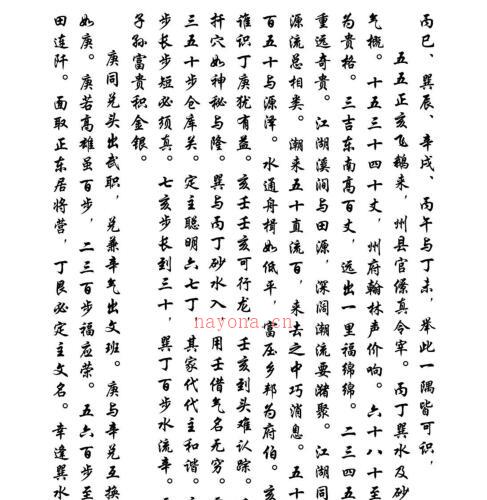 丙巳、巽辰、辛戌、丙午与丁未,举此一隅皆可识,
五五正亥飞鹅来,州县官僚真令宰。丙丁巽水及砂
气概。十五三十四十丈,州府翰林声价响。六十八十至
为贵格。三吉东南高百丈,远出一里福绵绵。二三四五
重远奇贵。江湖溪涧与田源,深阔潮流要潴聚。江湖同
源流总相类。潮来五十直流百,来去之中巧消息。五十
百五十与源泽。水通舟楫如低平,富压乡邦为府伯。亥
谁识丁庚犹有益。亥壬壬亥可行龙,壬亥到头难认踪。
扦穴如神秘与隆。巽与丙丁砂水入,用壬借气名无穷。
三五十步仓库关。定主聪明六七丁,其家代代主和谐。
步长步短必须真。七亥步长到三十,巽丁百步水流辛。
子孙富贵积金银。
庚同兑头出武职,兑兼辛气出文班。庚与辛兑互换
如庚。庚若高雄虽百步,二三百步福应荣。五六百步至
田连阡。面取正东居将营,丁艮必定主文名。幸逢巽水
nayona.cn